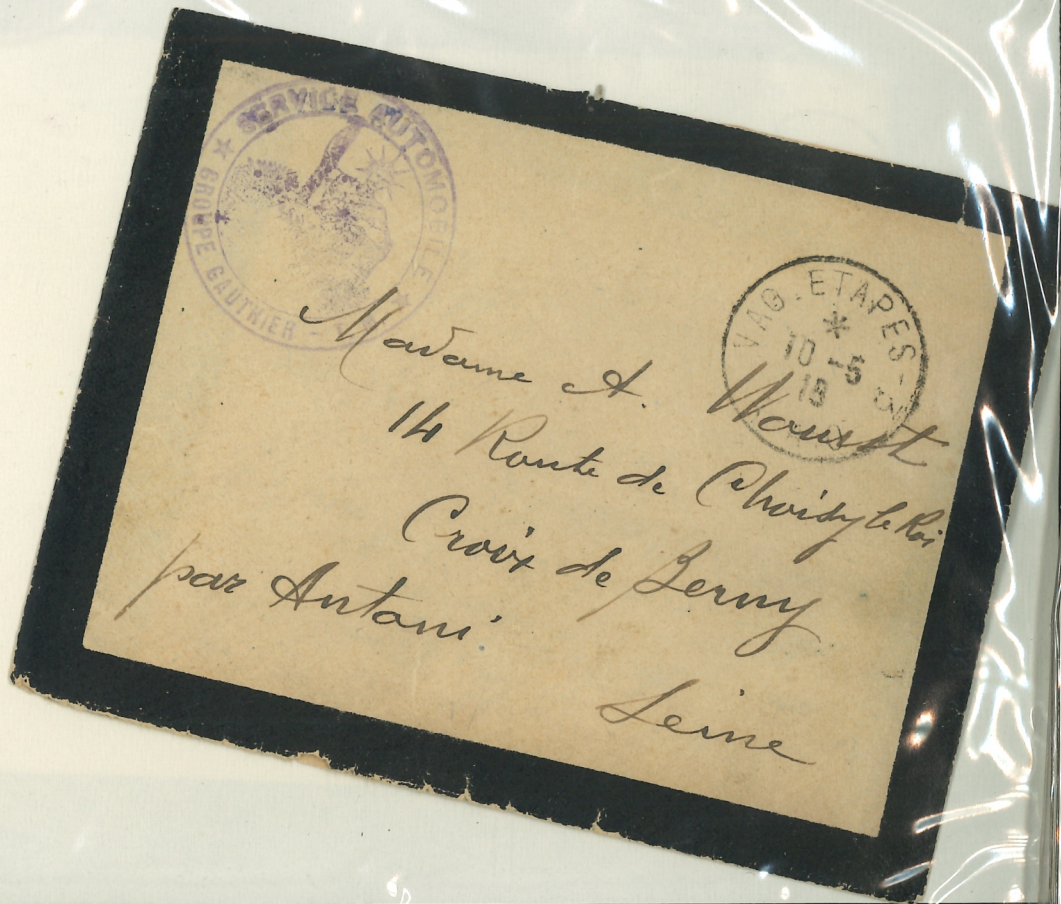 SERVICE AUTOMOBILE
GROUPE GAUTHIER
VAG. ETAPES -
10 - 5
18
Madame A.
14 Route de Choisy le Roi
Croix de Berny
par Antoni
Seine